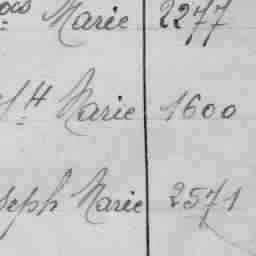 Marie 2277
Marie 1600
seph Marie 2571